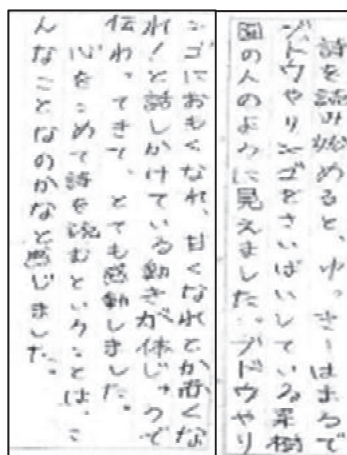 詩を読み始めると、ゆっきーはまるで
ブドウやリンゴをさいばいしている果樹
園の人のように見えました。ブドウやリ
ンゴにおもくなれ、甘くなれとか赤くな
れ!と話しかけている動きが体じゅうで
伝わってきて、とても感動しました。
心をこめて詩を読むということは、こ
んなことなのかなと感じました。